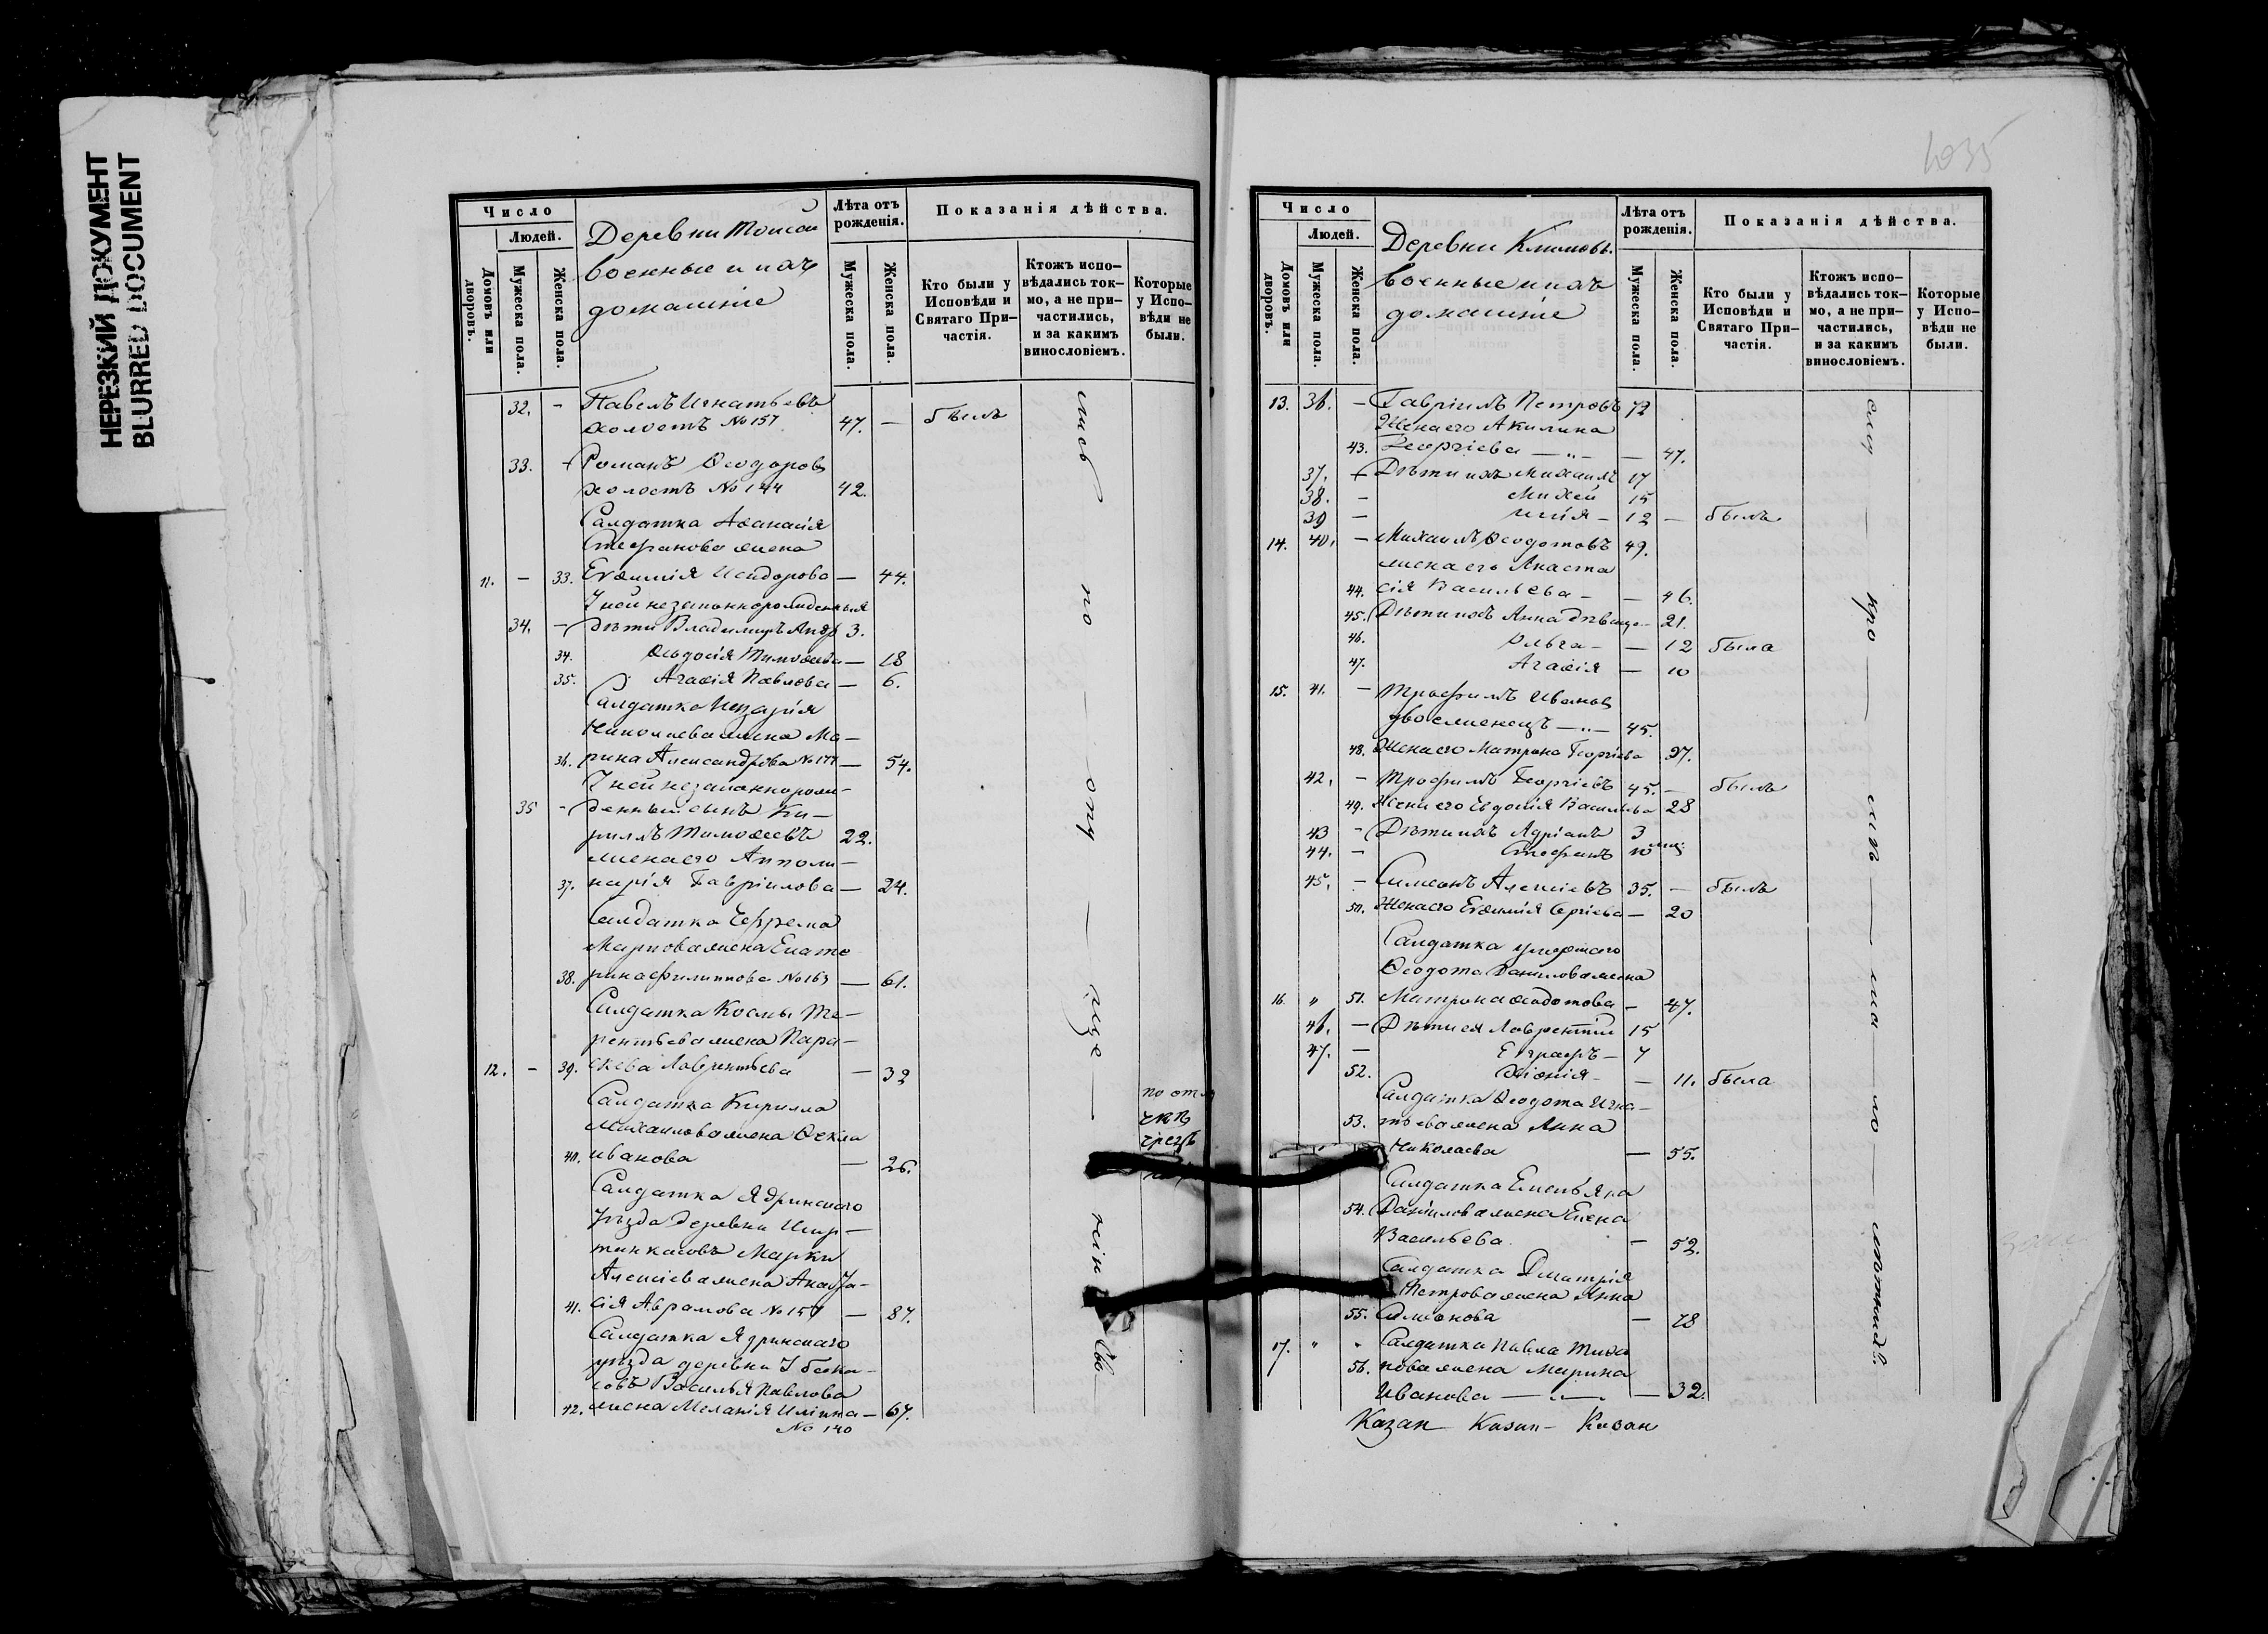 НЕРЕЗКИЙ ДОКУМЕНТ
BLURRED DOCUMENT
Число
Людей.
Домовъ или дворовъ.
Мужеска пола.
Женска пола.
Деревни
военные и ихъ
домашніе
Лѣта отъ рожденія.
Мужеска пола.
Женска пола.
Показанія дѣйства.
Кто были у Исповѣди и Святаго При-
частія.
Ктожъ испо-
вѣдались ток-
мо, а не при-
частились,
и за какимъ
винословіемъ.
Которые
у Испо-
вѣди не
были.
32. - Павелъ Игнатьевъ
холостъ № 157 47. — былъ
33. - Романъ Ѳеодоровъ
холостъ № 144 42.
Салдатка Аѳанасія
Стефанова жена
11. - 33. Евѳимія Исидорова — 44.
У ней незаконнорожденныя
34. - дѣти Владимиръ Андр 3.
34. Ѳеодосія Тимоѳеева — 18
35. Агаѳія Павлова — 6.
Салдатка Назарія
Николаева жена Ма-
36. рина Александрова № 177 — 54.
У ней незаконнорож-
35 - денный сынъ Ки-
риллъ Тимоѳеевъ 22.
жена его Аполи-
37. нарія Гавріилова — 24.
Салдатка Ефрема
Маркова жена Екате
38. рина Филиппова № 163 — 61.
Салдатка Космы Те-
рентьева жена Пара-
12. - 39. скева Лаврентьева — 32
Салдатка Кирилла
Михаилова жена Ѳекла
40. Иванова — 26.
Салдатка Ядринскаго
уѣзда деревни
Марки
Алексіева жена Анаста-
41. сія Аврамова № 157 — 87.
Салдатка Ядринскаго
уѣзда деревни
Василья Павлова
42. жена Меланія — 67.
№ 140
по от
1035
Число
Людей.
Домовъ или дворовъ.
Мужеска пола.
Женска пола.
Деревни Климовъ.
военные и ихъ
домашніе
Лѣта отъ рожденія.
Мужеска пола.
Женска пола.
Показанія дѣйства.
Кто были у Исповѣди и Святаго При-
частія.
Ктожъ испо-
вѣдались ток-
мо, а не при-
частились,
и за какимъ
винословіемъ.
Которые
у Испо-
вѣди не
были.
13. 36. - Гавріилъ Петровъ 72
Жена его Акилина
43. Георгіева — „ — — 47.
37. - Дѣти ихъ Михаилъ 17
38. - Михей 15
39 - Илія - 12 - былъ
14. 40. - Михаилъ Ѳеодотовъ 49.
жена его Анаста
44. сія Васильева - — 46.
45. Дѣти ихъ Анна дѣвица - 21.
46. Ольга - — 12 была
47. Агаѳія — 10
15. 41. - Трофимъ Ивановъ
двоеженецъ — „ — 45.
48. Жена его Матрона Георгіева 37.
42. - Трофимъ Георгіевъ 45. - былъ
49. Жена его Евдокія Васильева 28
43 - Дѣти ихъ Адріанъ 3
44. - Стефанъ 10 мц.
45. - Симеонъ Алексіевъ 35. - былъ
50. Жена его Евѳимія Сергіева — 20
Салдатка умершаго
Ѳеодота Данилова жена
16. „ 51. Матрона Ѳедотова - 47.
46. - Дѣти ея Лаврентій 15
47. - Евграфъ - 7
52. Ѳіонія - — 11. была
Салдатка Ѳеодота Игна-
53. тьева жена Анна
Николаева — 55.
Салдатка Емельяна
54. Данилова жена Елена
Васильева — 52.
Салдатка Дмитрія
Петрова жена Анна
55. Симеонова — 28
17. „ „ Салдатка Павла Тихо
56. нова жена Марина
Иванова — 32.
Казан Казан - Казан